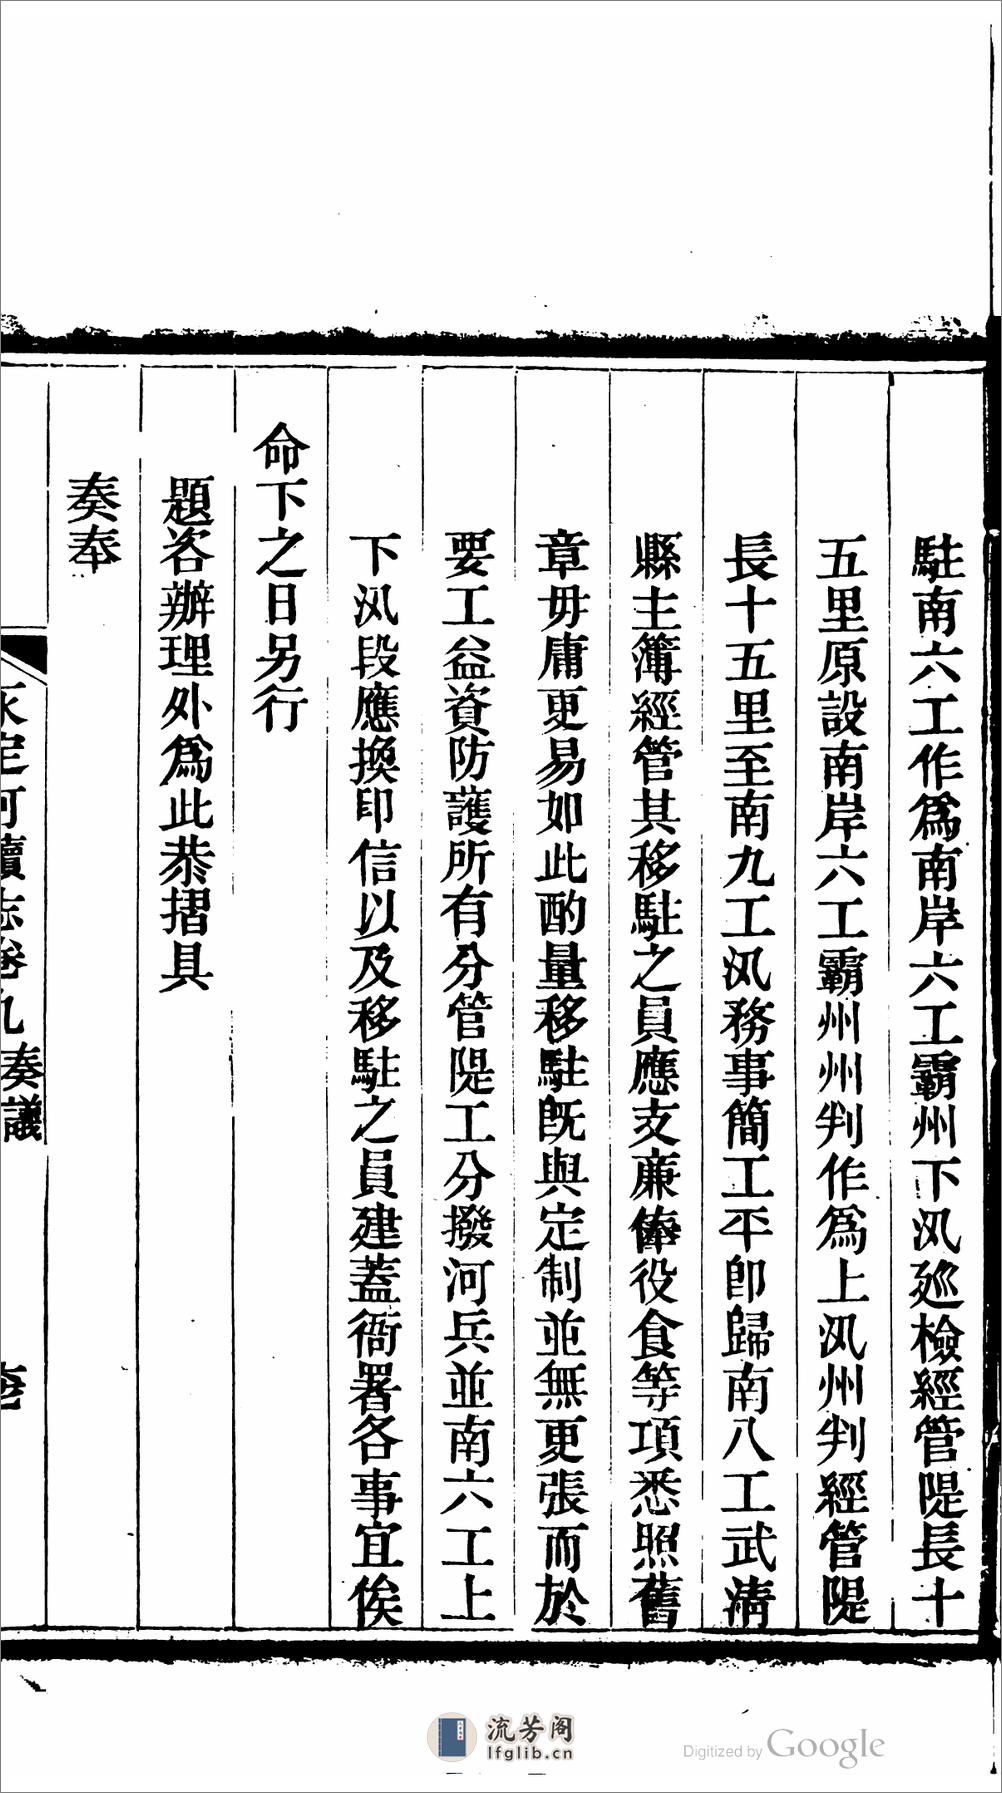 駐南六工作爲南岸六工霸州下汛廵檢經管隄長十
五里原設南岸六工霸州州判作爲上汛州判經管隄
長十五里至南九工汛務事簡工平卽歸南八工武淸
縣主簿經管其移駐之員應支廉俸役食等項悉照舊
章毋庸更易如此酌量移駐旣與定制並無更張而於
要工益資防護所有分管隄工分撥河兵並南六工上
下汛段應換印信以及移駐之員建蓋衙署各事宜俟
命下之日另行
題咨辦理外爲此恭摺具
奏奉
永定河續志卷九奏議
流芳阁
lfglib.cn
Digitized by Google